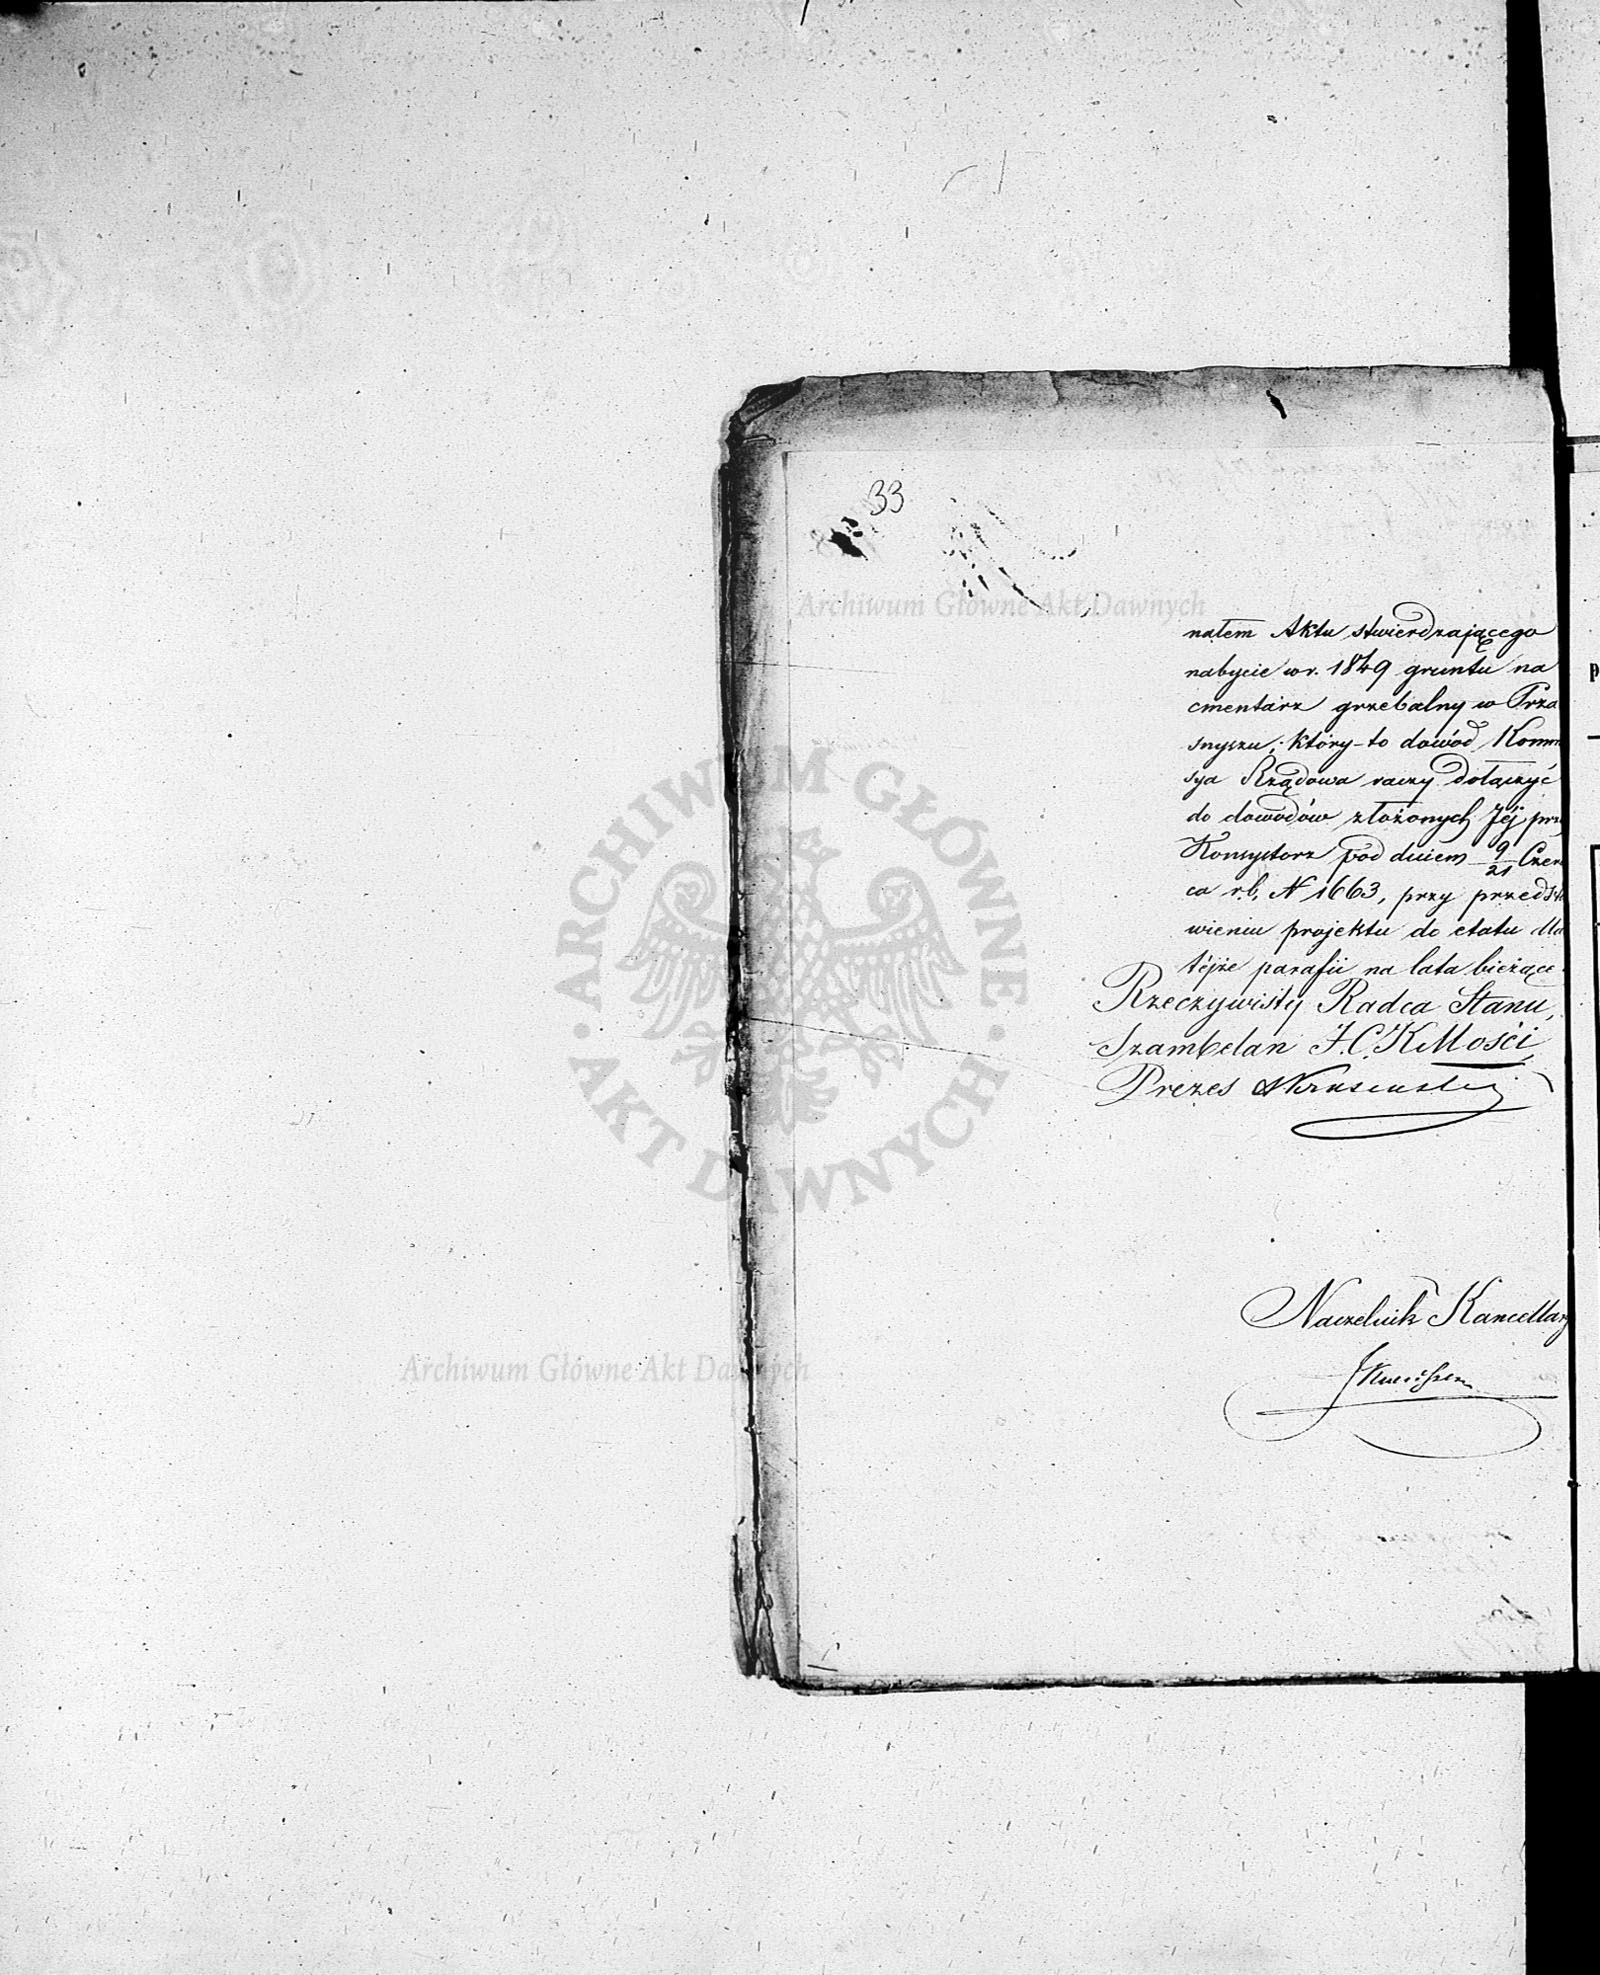 33
nałem Aktu stwierdzającego
nabycie w r. 1849 gruntu na
cmentarz grzebalny w Prza
snyszu; który-to dowód Komm
sya Rządowa raczy dołączyć
do dowodów złożonych Jéj prz
Konsystorz pod dniem 9/21 Czer
ca r.b. N 1663, przy przedsta
wieniu projektu do etatu dla
téjże parafii na lata bieżące.
Rzeczywisty Radca Stanu,
Szambelan J.C.K.Mości
Prezes
Naczelnik Kancellar
Archiwum Główne Akt Dawnych
ARCHIWUM GŁÓWNE · AKT DAWNYCH ·
Archiwum Główne Akt Dawnych